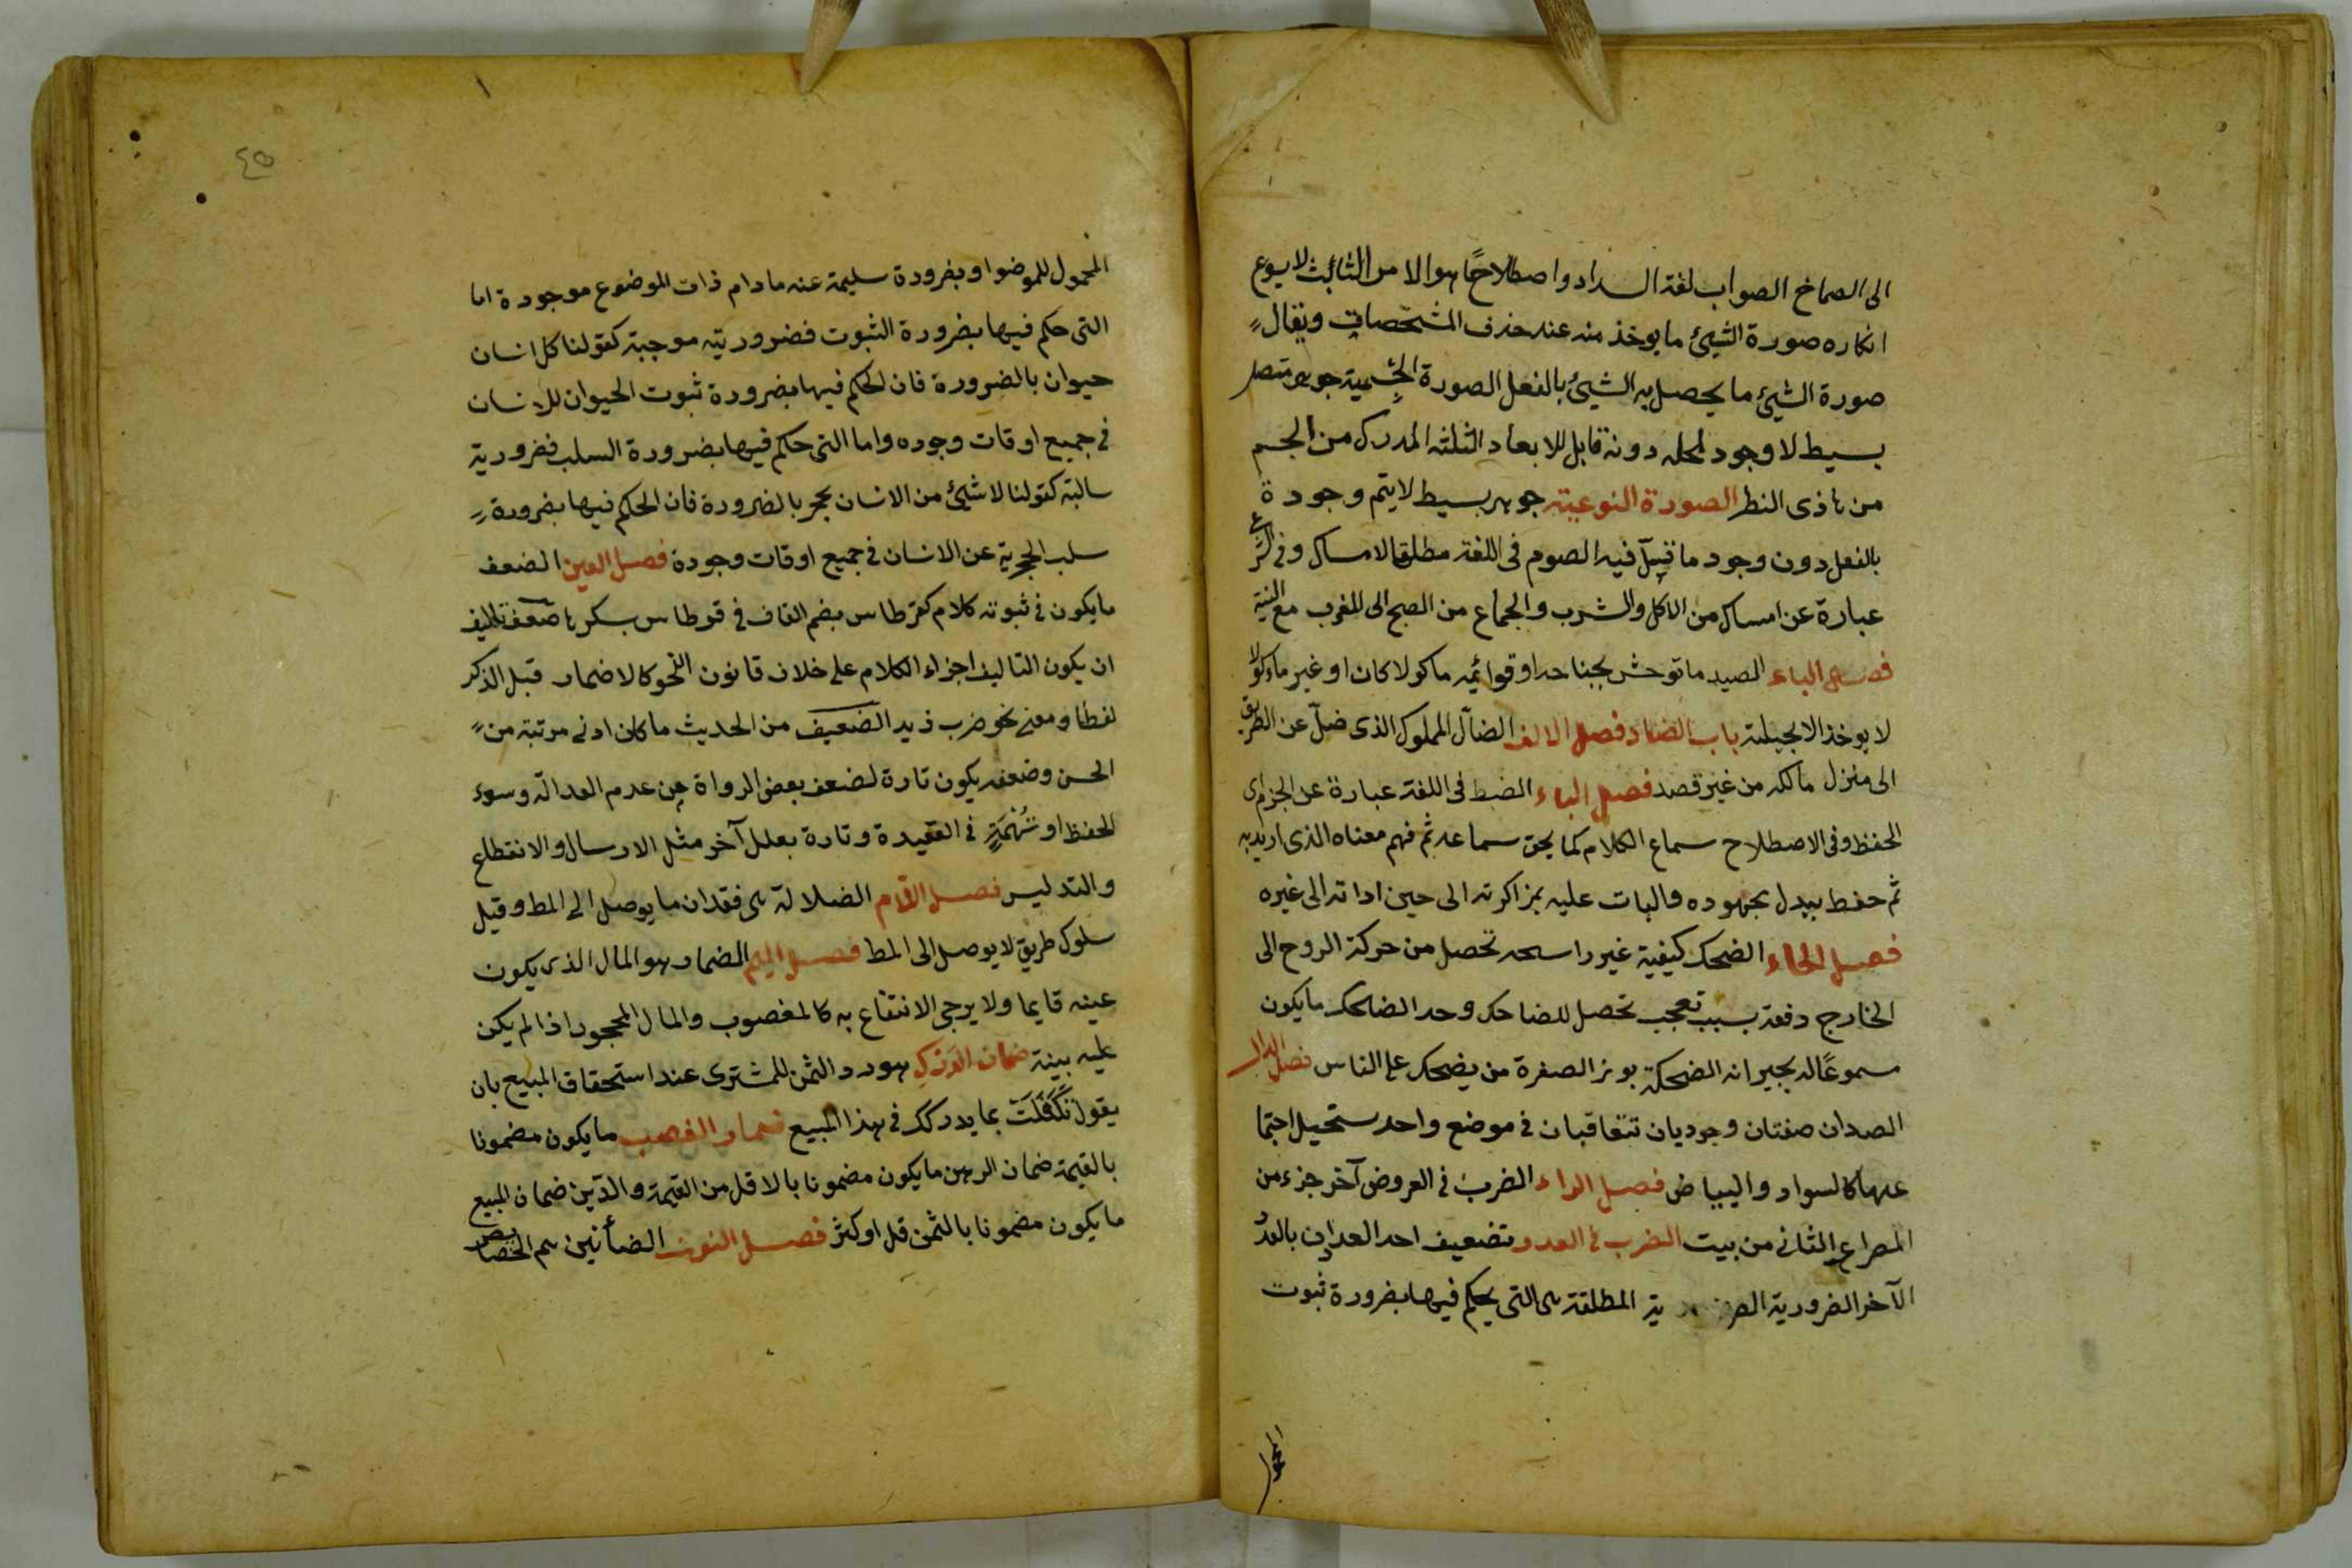 الى الصماخ الصواب لغة السداد واصطلاحًا هوالامر الثابث لايوع
انكاره صورة الشيئ مايوخذ منه عند حذف المشخصات ويقال
صورة الشيئ ما يحصل به الشيئ بالفعل الصورة الجسمية جوهر متصل
بسيط لاوجود لمحله دونه قابل للابعاد الثلثه المدرك من الجسم
من ياذى النظر الصورة النوعيته جوهر بسيط لايتم وجودة
بالفعل دون وجود ماقيل فيه الصوم فى اللغة مطلق الامساك وفى الشرع
عبارة عن امساك من الاكل والشرب والجماع من الصبح الى المغرب مع النية
فصل الياء الصيد ماتوحش بجناحه اوقوائمه ماكولا كان اوغير ماكولا
لايوخذ الابحيلته باب الضاد فصل الالف الضآل المملوك الذى ضل عن الطريق
الى منزل مالكه من غير قصد فصل الباء الضبط فى اللغة عبارة عن الجزم اى
الحفظ وفى الاصطلاح سماع الكلام كما يحق سماعه ثم فهم معناه الذى اريد به
ثم حفظ ببدل بجهوده والبات عليه بمزاكرته الى حين اداته الى غيره
فصل الحاء الضحك كيفية غير راسحه تحصل من حركة الروح الى
الخارج دفعة بسبب تعجب تحصل للضاحك وحد الضاحك مايكون
مسموعًا له بجيرانه الضحكة بوزر الصفرة من يضحك على الناس فصل الدال
الصدان صفتان وجوديان تتعاقبان فى موضع واحد ستحيل اجتما
عهما كالسواد والبياض فصل الراء الضرب فى العروض آخر جزء من
المصراع الثانى من بيت الضرب فى العدد وتضعيف احد العددين بالعدد
الآخر الضرورية المطلقة هى التى يحكم فيها بضرورة ثبوت
المحمول
٤٥
المحمول للموضوا وبضرورة سليمة عنه مادام ذات الموضوع موجودة اما
التى حكم فيها بضرورة الثبوت فضروريته موجبة كقولنا كل انسان
حيوان بالضرورة فان الحكم فيها بضرورة ثبوت الحيوان للانسان
فى جميع اوقات وجوده واما التى حكم فيها بضرورة السلب فضرورية
سالبة كقولنا لاشيئ من الانسان بحجر بالضرورة فان الحكم فيها بضرورة
سلب الحجرية عن الانسان فى جميع اوقات وجودة فصل العين الضعف
مايكون فى ثبوته كلام كقرطاس بضم القاف فى قوطاس بسكرها ضعف تاليف
ان يكون التاليف اجزاء الكلام على خلاف قانون النحو كالاضمار قبل الذكر
لفظا ومعنى نحو ضرب زيد الضعيف من الحديث ماكان ادنى مرتبة من
الحسن وضعفه يكون تارة لضعف بعض الرواة من عدم العدالة وسوء
الحفظ او تُهْمَةٍ فى العقيدة وتارة بعلل آخر مثل الارسال والانقطاع
والتدليس فصل اللام الضلالة هى فقدان مايوصل الى المط وقيل
سلوك طريق لايوصل الى المط فصل الميم الضمار هو المال الذى يكون
عينه قايما ولايرجى الانتفاع به كالمغصوب والمال المجحود اذا لم يكن
عليه بينة ضمان الدرك هورد الثمن للمشترى عند استحقاق المبيع بان
يقول تَكَفَّلْتَ بما يدركك فى هذا المبيع ضمان الغصب مايكون مضمونا
بالقيمة ضمان الرهن مايكون مضمونا بالاقل من القيمة والدين ضمان المبيع
مايكون مضمونا بالثمن قل اوكثر فصل النون الضأنين هم الخصايص